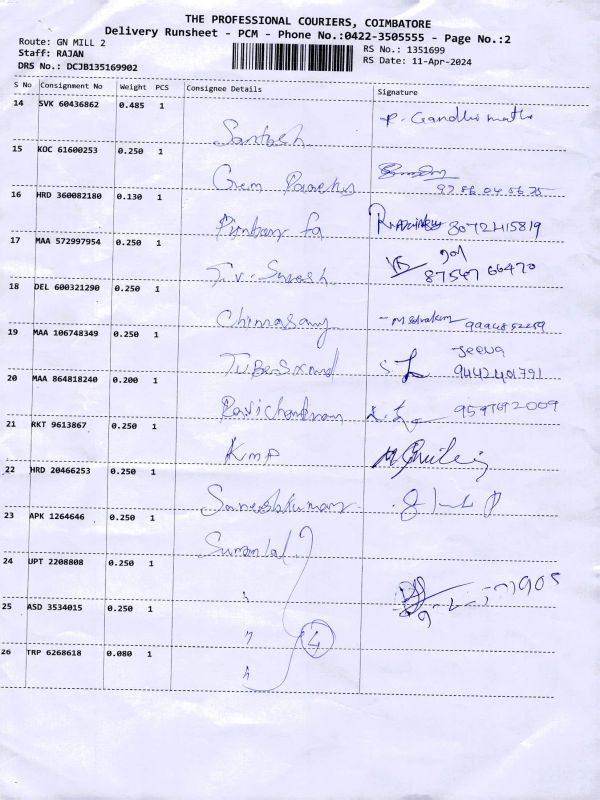 THE PROFESSIONAL COURIERS, COIMBATORE
Delivery Runsheet - PCM - Phone No.:0422-3505555 - Page No.:2
Route: GN MILL 2
Staff: RAJAN
DRS No.: DCJB135169902
RS No.: 1351699
RS Date: 11-Apr-2024
S No Consignment No Weight PCS Consignee Details Signature
14 SVK 60436862 0.485 1 Santosh P. Gandhimathi
15 KOC 61600253 0.250 1 Gem
16 HRD 360082180 0.130 1 8072415819
17 MAA 572997954 0.250 1 T.V. Suresh 87547 66470
18 DEL 600321290 0.250 1 Chinnasamy
19 MAA 106748349 0.250 1 Jeeva 9442401791
20 MAA 864818240 0.200 1 Ravichandran
21 RKT 9613867 0.250 1 KMP
22 HRD 20466253 0.250 1 Sureshkumar
23 APK 1264646 0.250 1
24 UPT 2208808 0.250 1
25 ASD 3534015 0.250 1 4
26 TRP 6268618 0.080 1